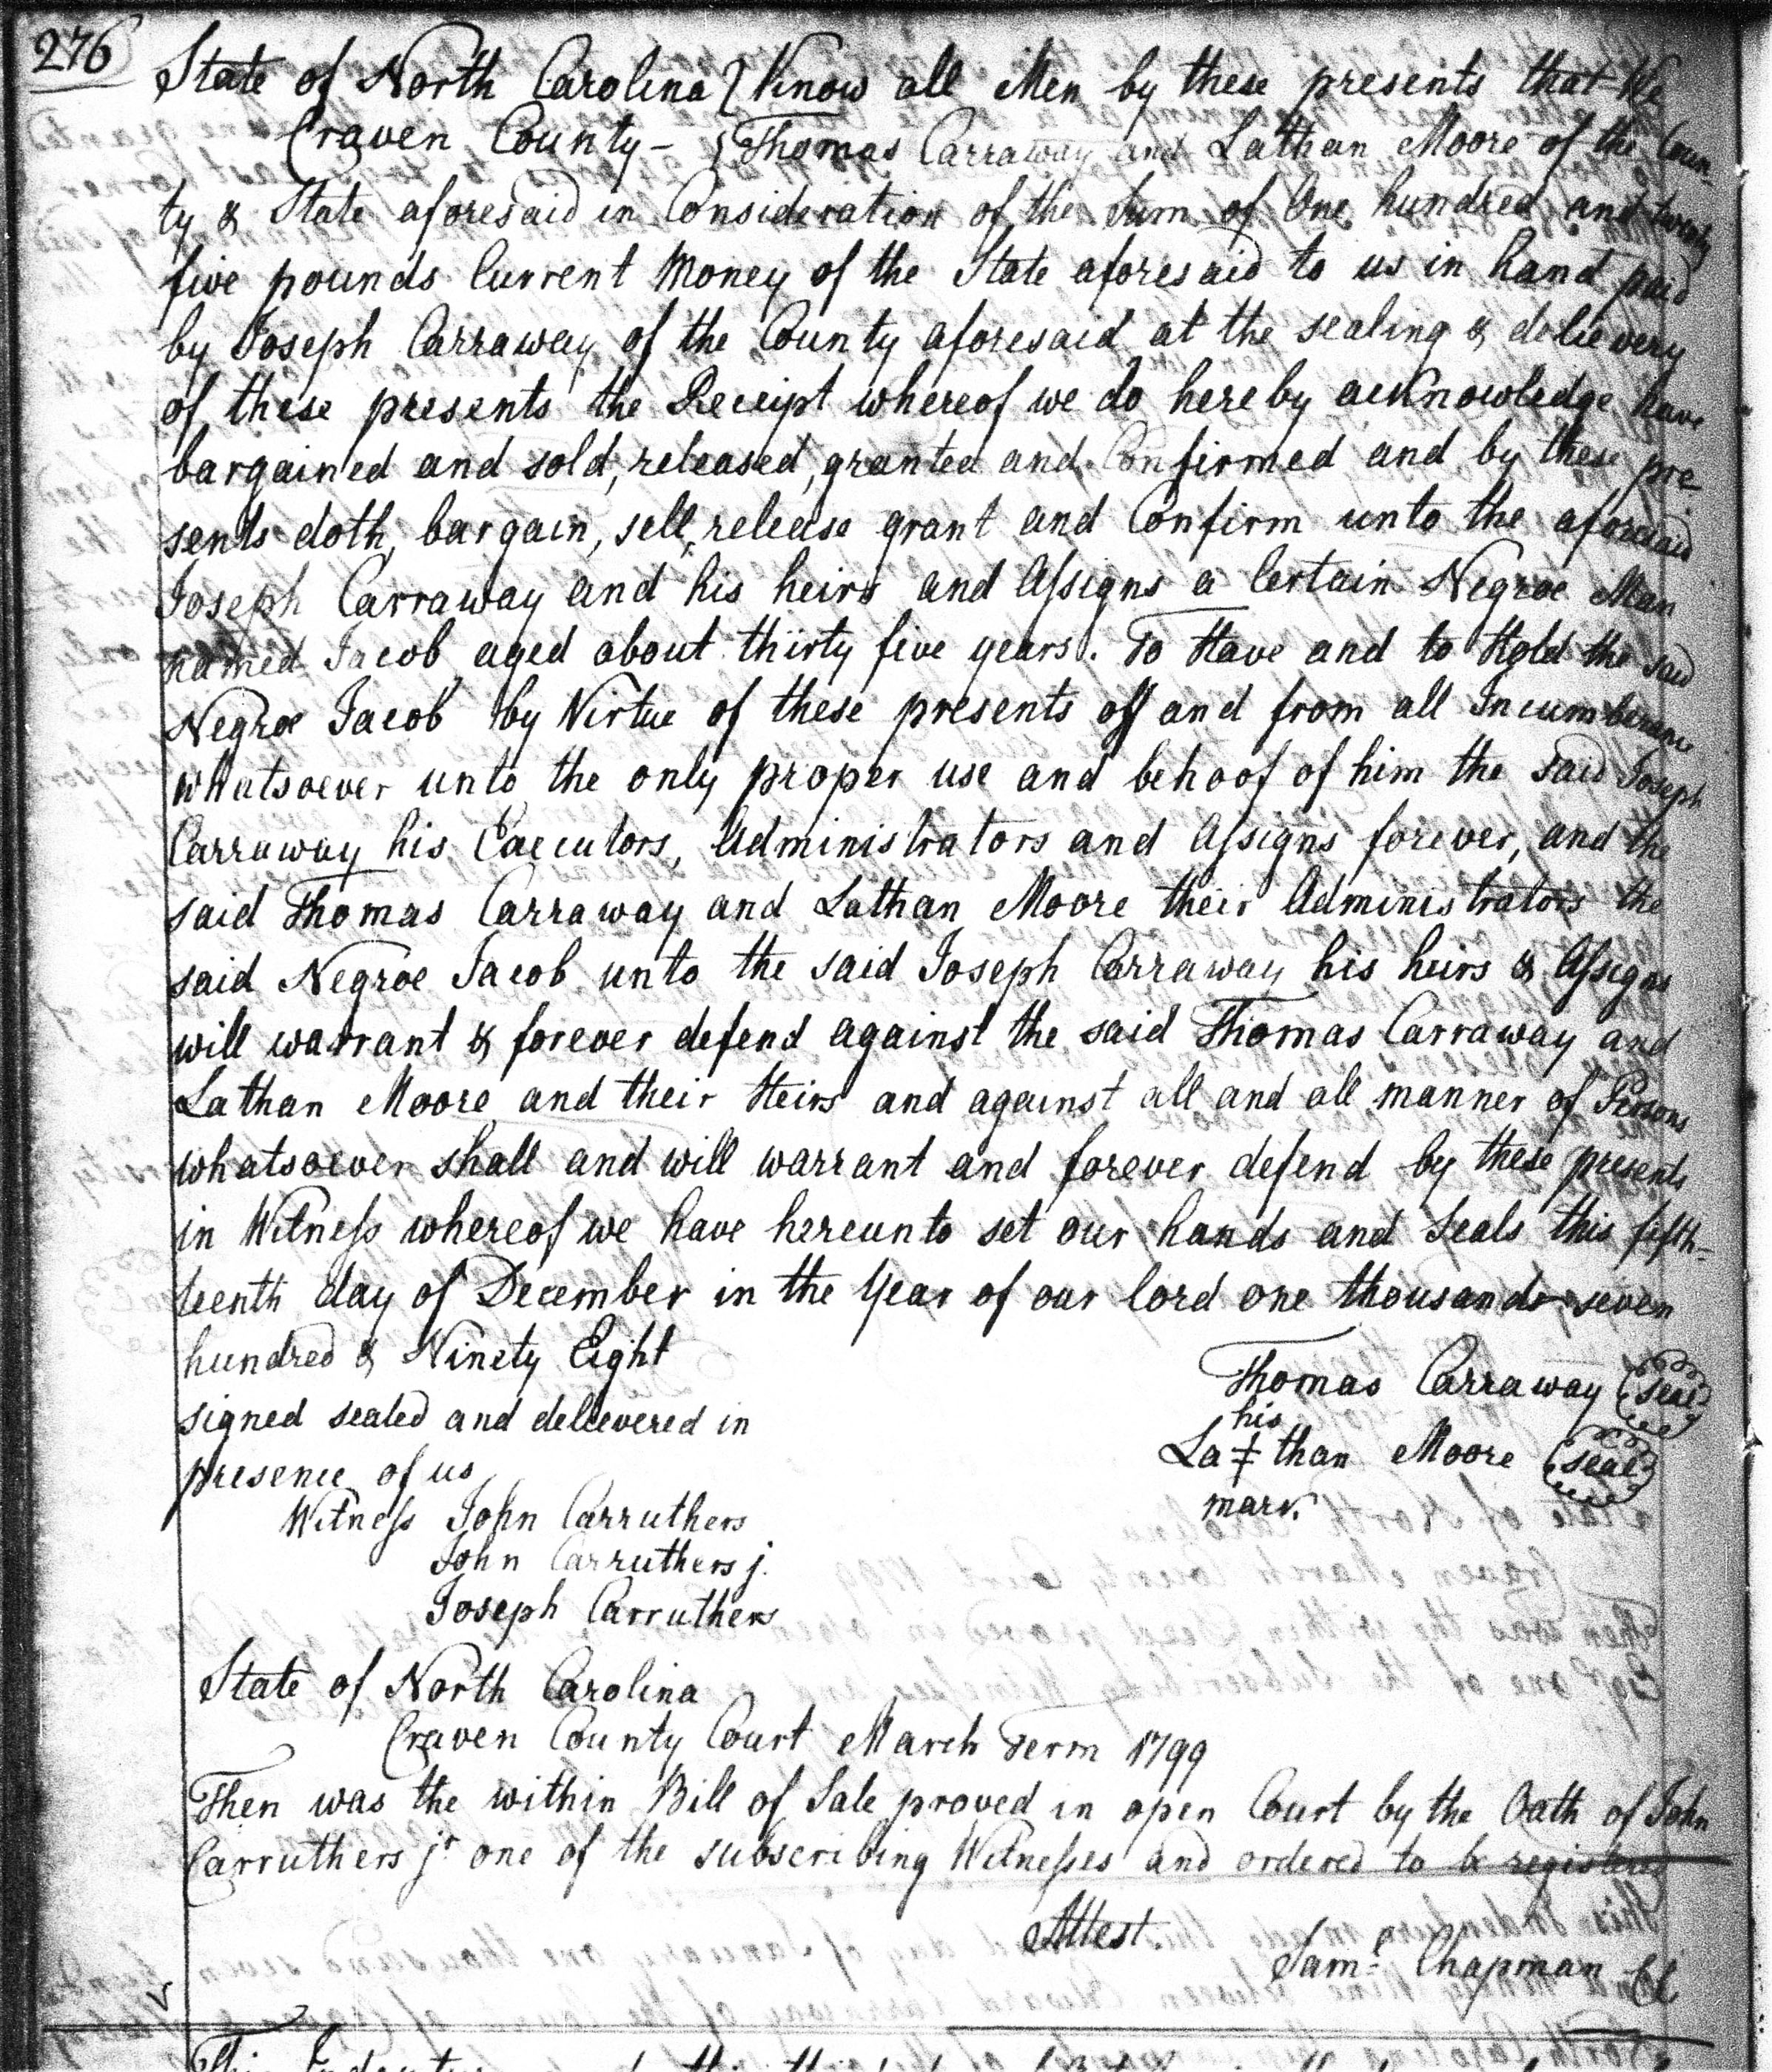 276
State of North Carolina } Know all Men by these presents that We
Craven County - } Thomas Carraway and Lathan Moore of the Coun-
ty & State aforesaid in Consideration of the Sum of One hundred and twenty
five pounds Current Money of the State aforesaid to us in hand paid
by Joseph Carraway of the County aforesaid at the sealing & delievery
of these presents the Receipt whereof we do hereby acknowledge have
bargained and sold, released, granted and Confirmed and by these pre-
sents doth, bargain, sell, release grant and Confirm unto the aforesaid
Joseph Carraway and his heirs and Assigns a Certain Negroe Man
named Jacob aged about thirty five years. To Have and to Hold the said
Negroe Jacob by Virtue of these presents off and from all Incumberance
whatsoever unto the only proper use and behoof of him the said Joseph
Carraway his Executors, Administrators and Assigns forever, and the
said Thomas Carraway and Lathan Moore their Administrators the
said Negroe Jacob unto the said Joseph Carraway his heirs & Assigns
will warrant & forever defend against the said Thomas Carraway and
Lathan Moore and their Heirs and against all and all manner of Persons
whatsoever shall and will warrant and forever defend by these presents
in Witness whereof we have hereunto set our hands and Seals this fifth-
teenth day of December in the Year of our lord one thousand seven
hundred & Ninety Eight
Thomas Carraway (seal)
signed sealed and delievered in
his
La ‡ than Moore (seal)
presence of us
mark.
Witness John Carruthers
John Carruthers j.
Joseph Carruthers
State of North Carolina
Craven County Court March Term 1799
Then was the within Bill of Sale proved in open Court by the Oath of John
Carruthers jr one of the subscribing Witnesses and ordered to be registered
Attest.
Saml Chapman Cl
This Indenture